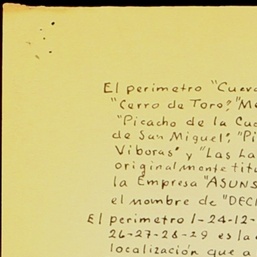 El perimetro "Cueva
"Cerro de Toro", "Me
"Picacho de la Cu
de San Miguel", "Pi
Viboras" y "Las La
originalmente titu
la Empresa "ASUNS
el nombre de "DECI
El perimetro 1-24-12-
26-27-28-29 es la
localización que a